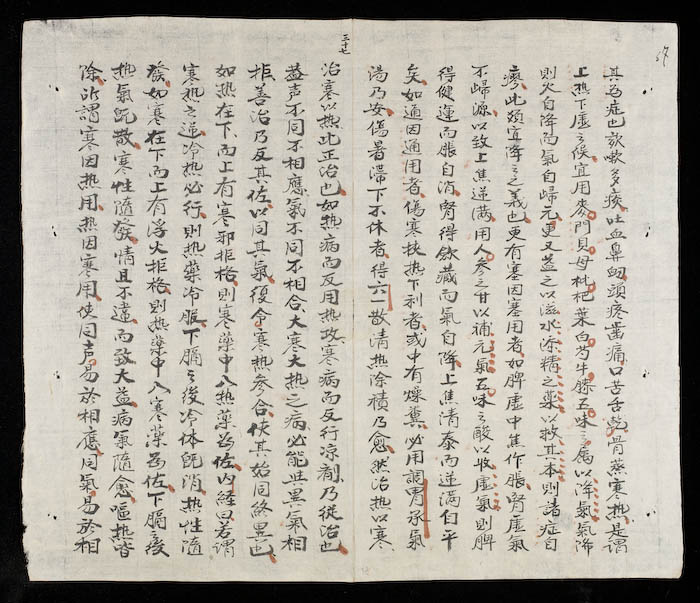 其為症也欬嗽多痰吐血鼻衄頭疼齒痛口苦舌乾骨蒸寒热是謂
上热下虛之候宜用麥門貝母枇杷葉白芍牛膝五味之属以降氣氣降
則火自降而氣自歸元更又益之以滋水添精之藥以救其本則諸症自
瘳此頻宜降之之義也更有塞因塞用者如脾虛中焦作脹腎虛氣
不歸源以致上焦逆满用人参之甘以補元氣五味之酸以收虛氣則脾
得健運而脹自消腎得斂藏而氣自降上焦清泰而逆满自平
矣如通因通用者傷寒挾热下利者或中有燥糞必用調胃承氣
湯乃安傷暑滯下不休者得六一散清热除積乃愈然治热以寒
三十七
治寒以热此正治也如热病而反用热攻寒病而反行凉剤乃從治也
盖声不同不相應氣不同不相合大寒大热之病必能与異氣相
拒善治乃反其佐以同其氣復令寒热参合使其始同終異也
如热在下而上有寒邪拒格則寒藥中入热藥為佐内経曰若謂
寒热之逆冷热必行則热藥冷服下膈之後冷体既消热性隨
發如寒在下而上有浮火拒格則热藥中入寒藥為佐下膈之後
热氣既散寒性隨發情且不違而致大益病氣隨愈嘔热皆
除所謂寒因热用热因寒用使同声易於相應同氣易於相